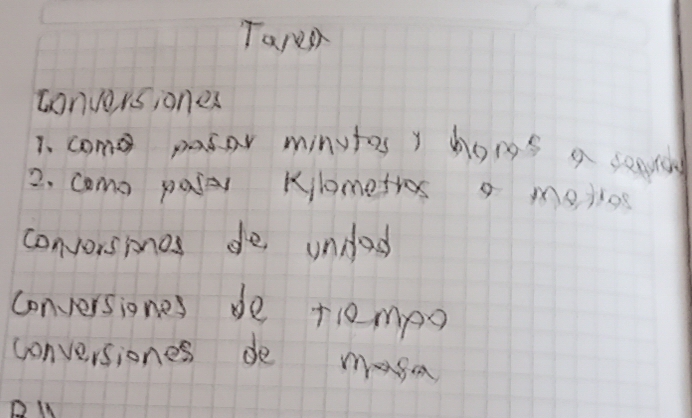 Tarea
conversiones
1. como pasar minutos y horas a segundo
2. como pasar Kilometros a metros
conversiones de unidad
conversiones de tiempo
conversiones de masa